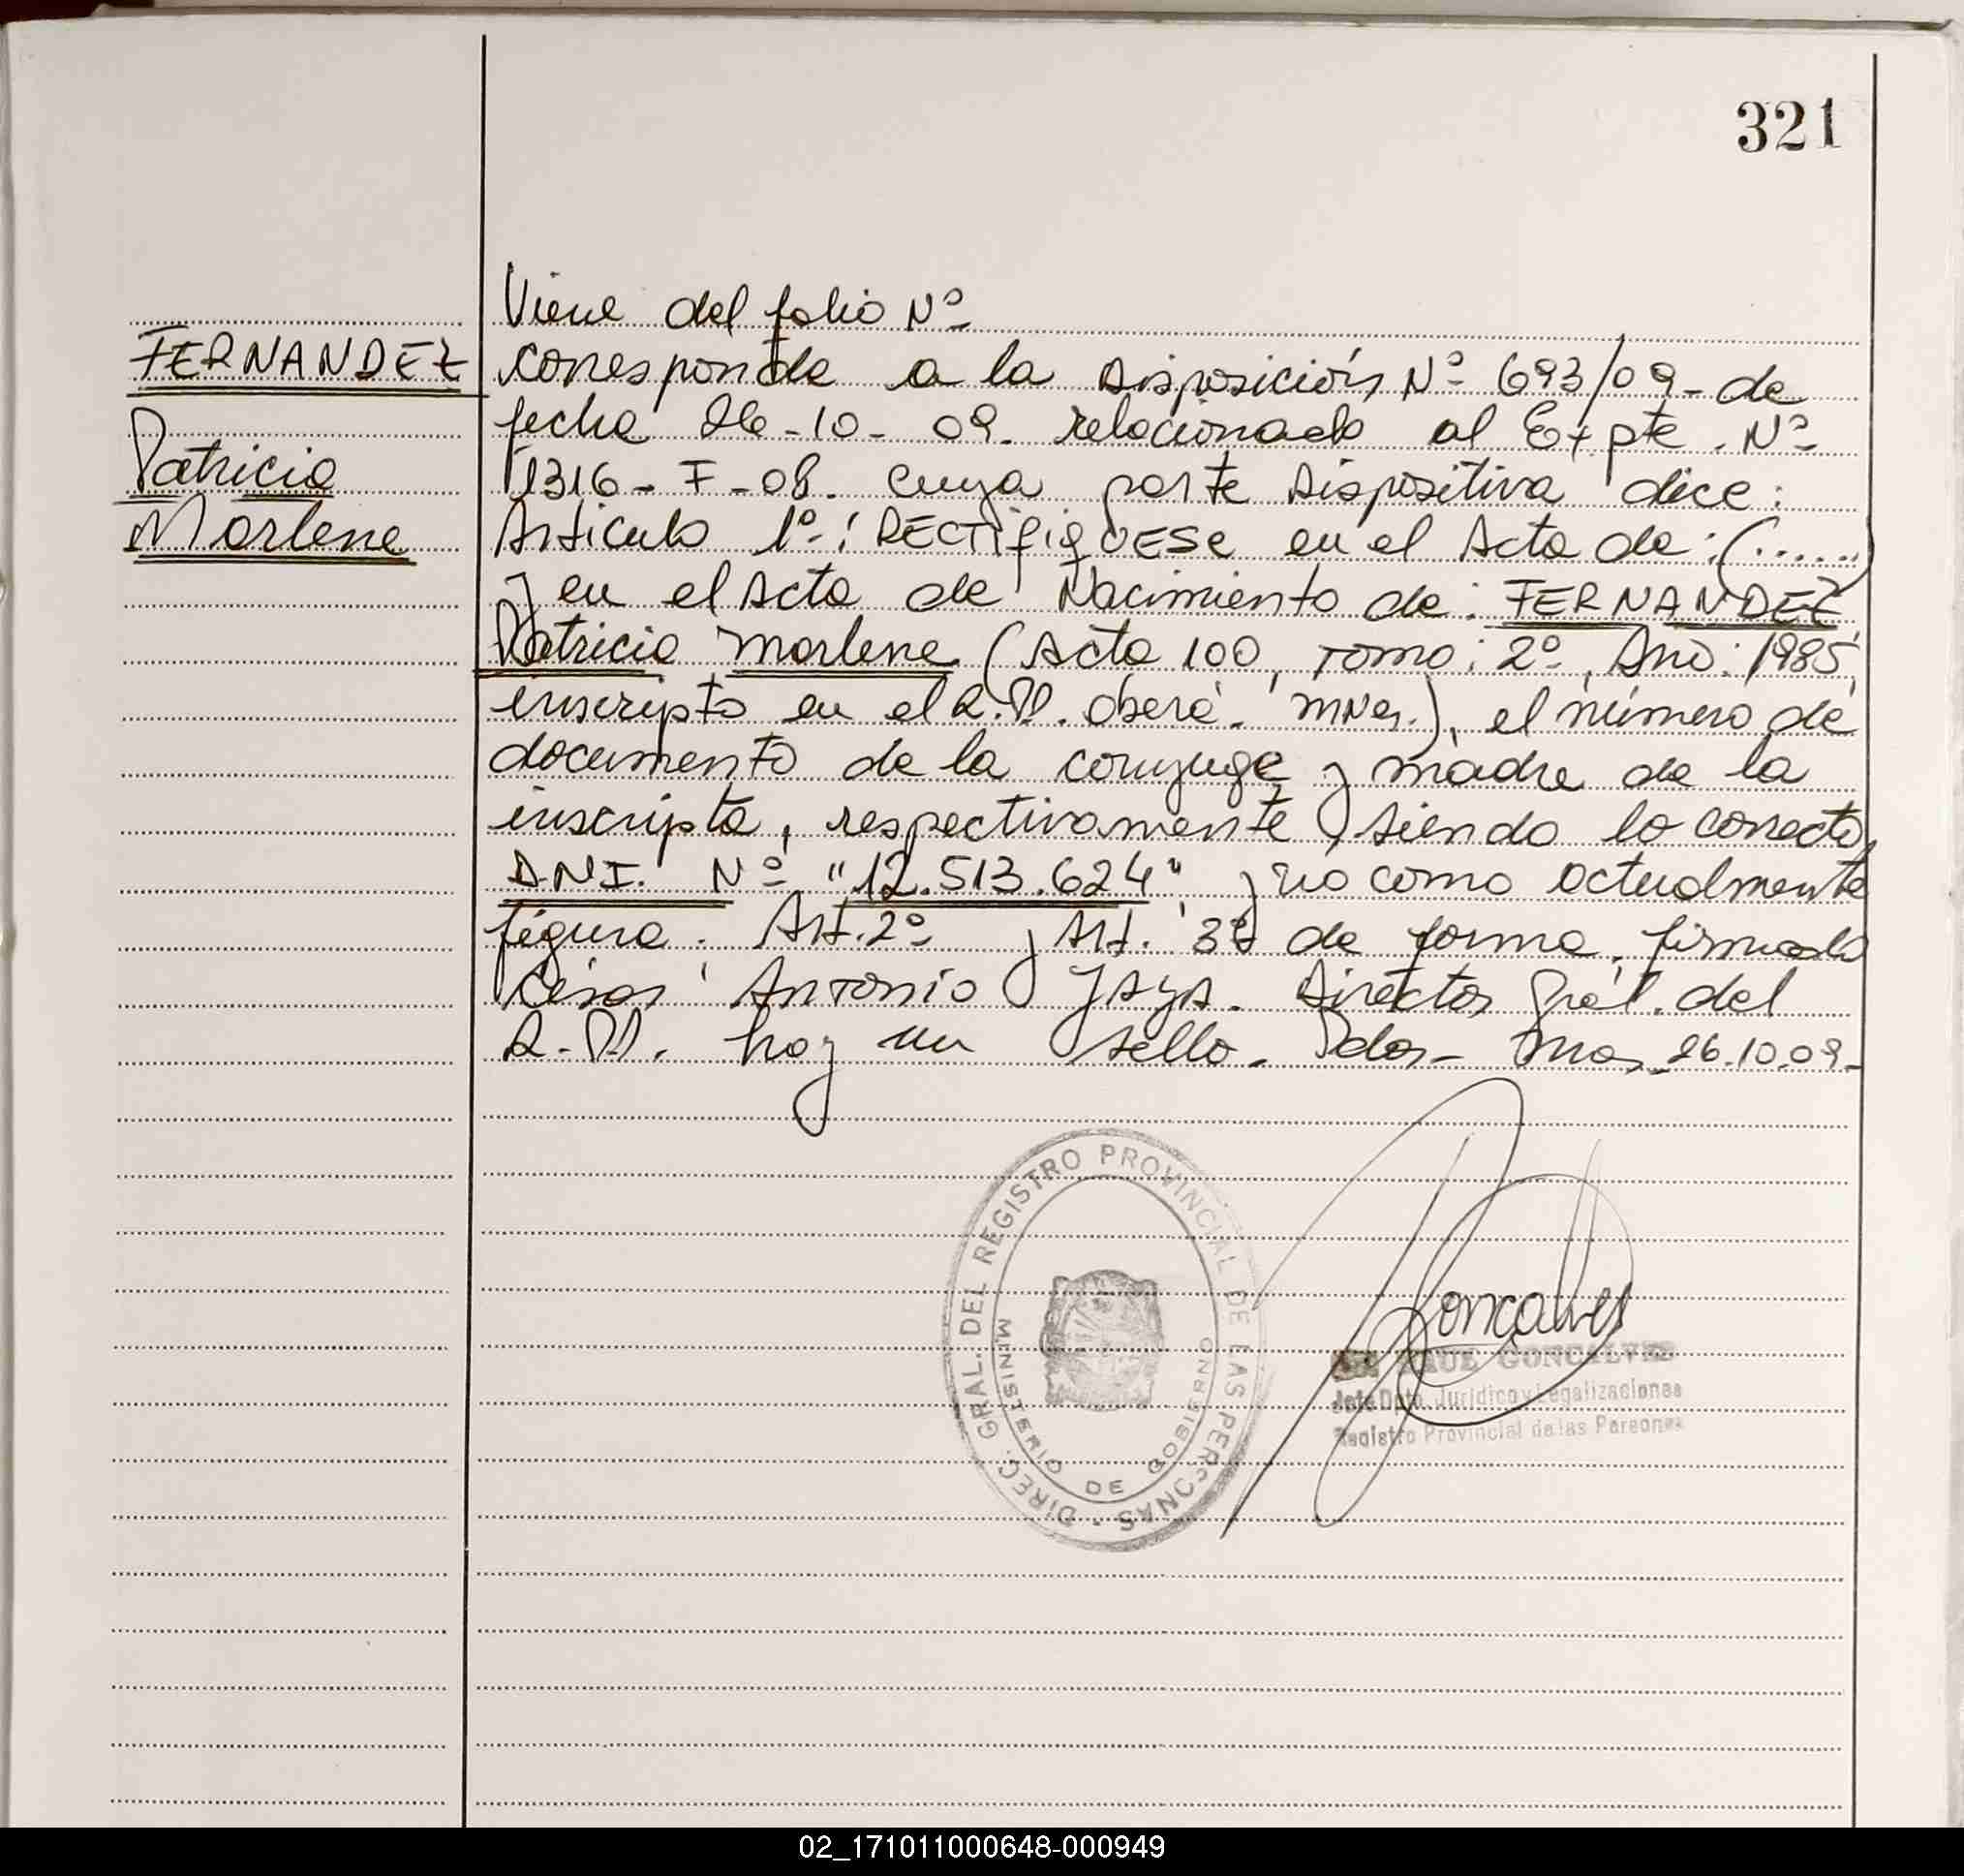 321
Viene del folio Nº
FERNANDEZ
Patricia
Marlene
corresponde a la disposición Nº 693/09 - de
fecha 26-10-09. relacionado al Expte. Nº
1316 - F - 08. cuya parte dispositiva dice:
Articulo 1º: RECTIFIQUESE en el Acta de: (......)
y en el Acta de Nacimiento de: FERNANDEZ
Patricia Marlene (Acta 100, Tomo: 2º, Año: 1985,
inscripta en el R.P. Oberá - Mnes.), el número de
documento de la conyuge y madre de la
inscripta, respectivamente, siendo lo correcto
DNI. Nº "12.513.624", y no como actualmente
figura. Art. 2º y Art. 3º de forma, firmado
César Antonio JAYA. Director Gral. del
R.P. hay un sello. Pdas - Mnes, 26.10.09-
DIREC. GRAL. DEL REGISTRO PROVINCIAL DE LAS PERSONAS -
MINISTERIO DE GOBIERNO
Goncalves
RAUL GONCALVES
Jefe Dpto. Jurídico y Legalizaciones
Registro Provincial de las Personas
02_171011000648-000949